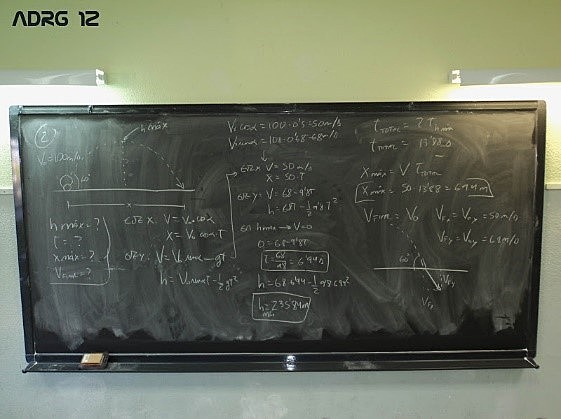 ADRG 12
2
h máx
V₀=100m/s
60°
x
h máx = ?
t = ?
x máx = ?
V Final = ?
en x: V = V₀ cos α
X = V₀ cos α·t
en y: V = V₀ sen α - gt
h = V₀ sen α t - ½ gt²
V₀ cos α = 100·0'5 = 50 m/s
V₀ sen α = 100·0'68 = 68 m/s
en x V = 50 m/s
X = 50·t
en y: V = 68 - 9'8t
en h máx → V = 0
0 = 68 - 9'8t
t = 68/9'8 = 6'94 s
h = 68·6'94 - ½ 9'8·6'94²
h máx = 235'84 m
t TOTAL = 2 t h máx
t TOTAL = 13'88 s
X máx = V·t TOTAL
X máx = 50·13'88 = 694 m
V FINAL = V₀
V Fx = V₀x = 50 m/s
V Fy = V₀y = 68 m/s
60°
V Fy